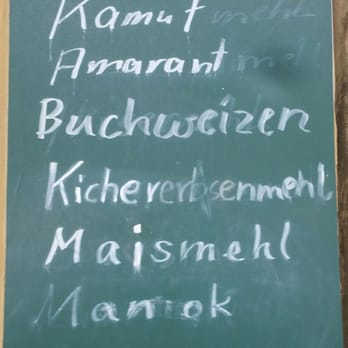 Kamutmehl
Amarantmehl
Buchweizen
Kichererbsenmehl
Maismehl
Maniok